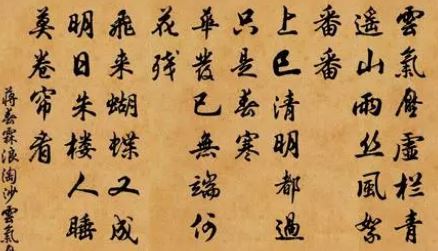 雲氣压虛栏青
遥山雨丝風絮
番番
上巳清明都過
只是春寒
華發已無端何
花残
飛来蝴蝶又成
明日朱楼人睡
莫卷帘看
蔣春霖浪淘沙雲氣